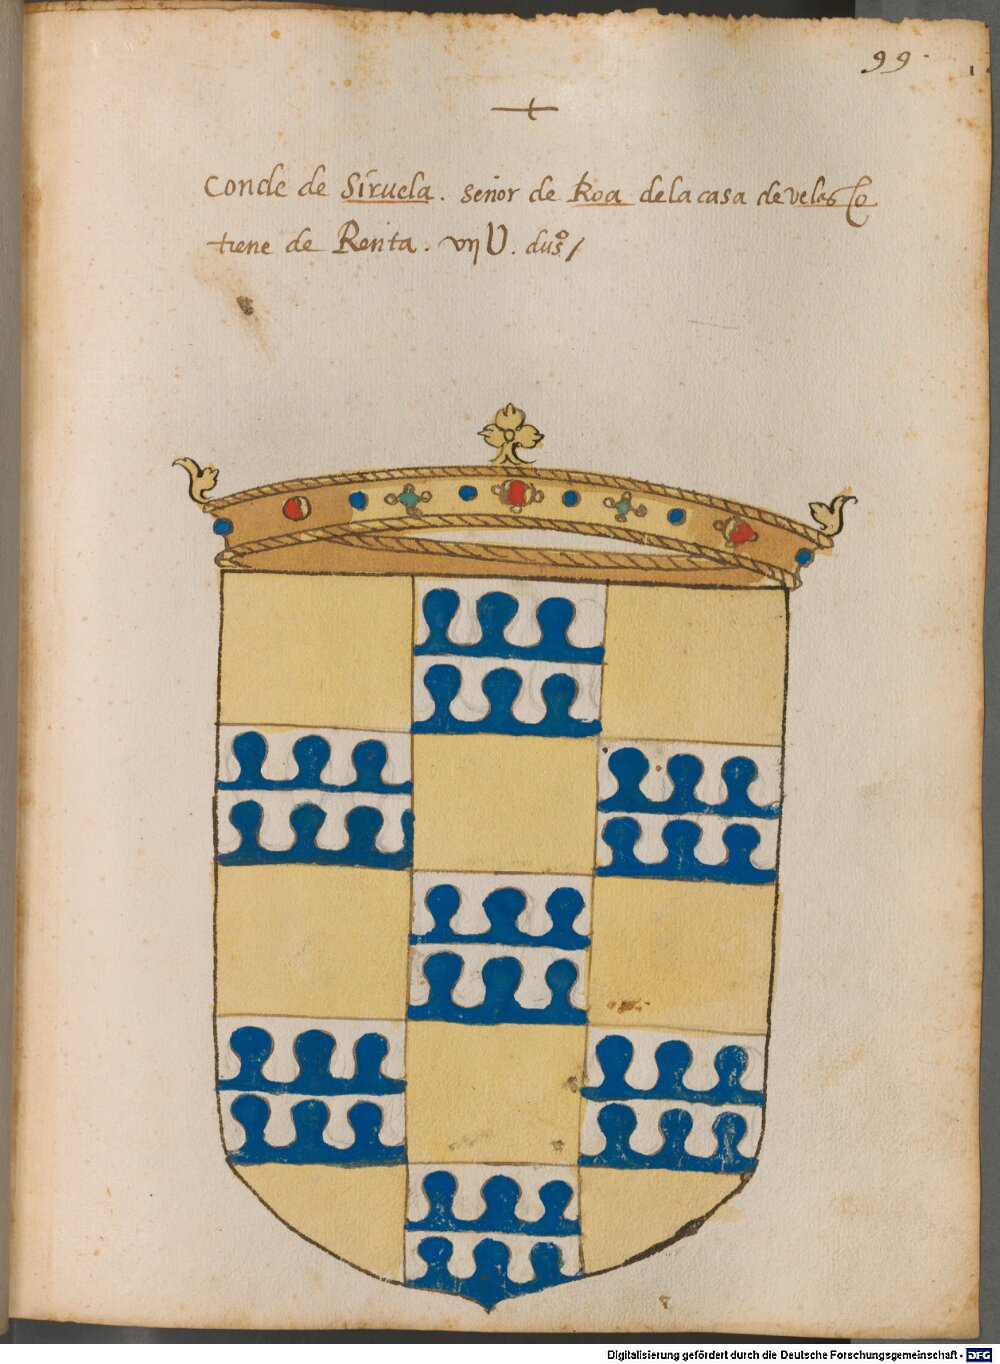 99.
Conde de Siruela. señor de Roa de la casa de velasco
tiene de Renta. vij U. dus°/
Digitalisierung gefördert durch die Deutsche Forschungsgemeinschaft - DFG